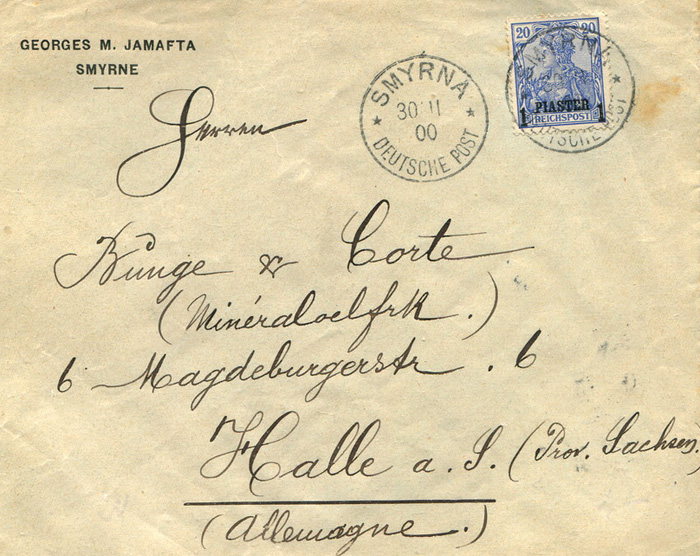 GEORGES M. JAMAFTA
SMYRNE
SMYRNA
30 11
00
DEUTSCHE POST
20 20
1 PIASTER 1
REICHSPOST
SMYRNA
DEUTSCHE POST
Herren
Bunge & Corte
(Minéraloelfrk.)
6 Magdeburgerstr. 6
Halle a. S. (Prov. Sachsen)
(Allemagne.)